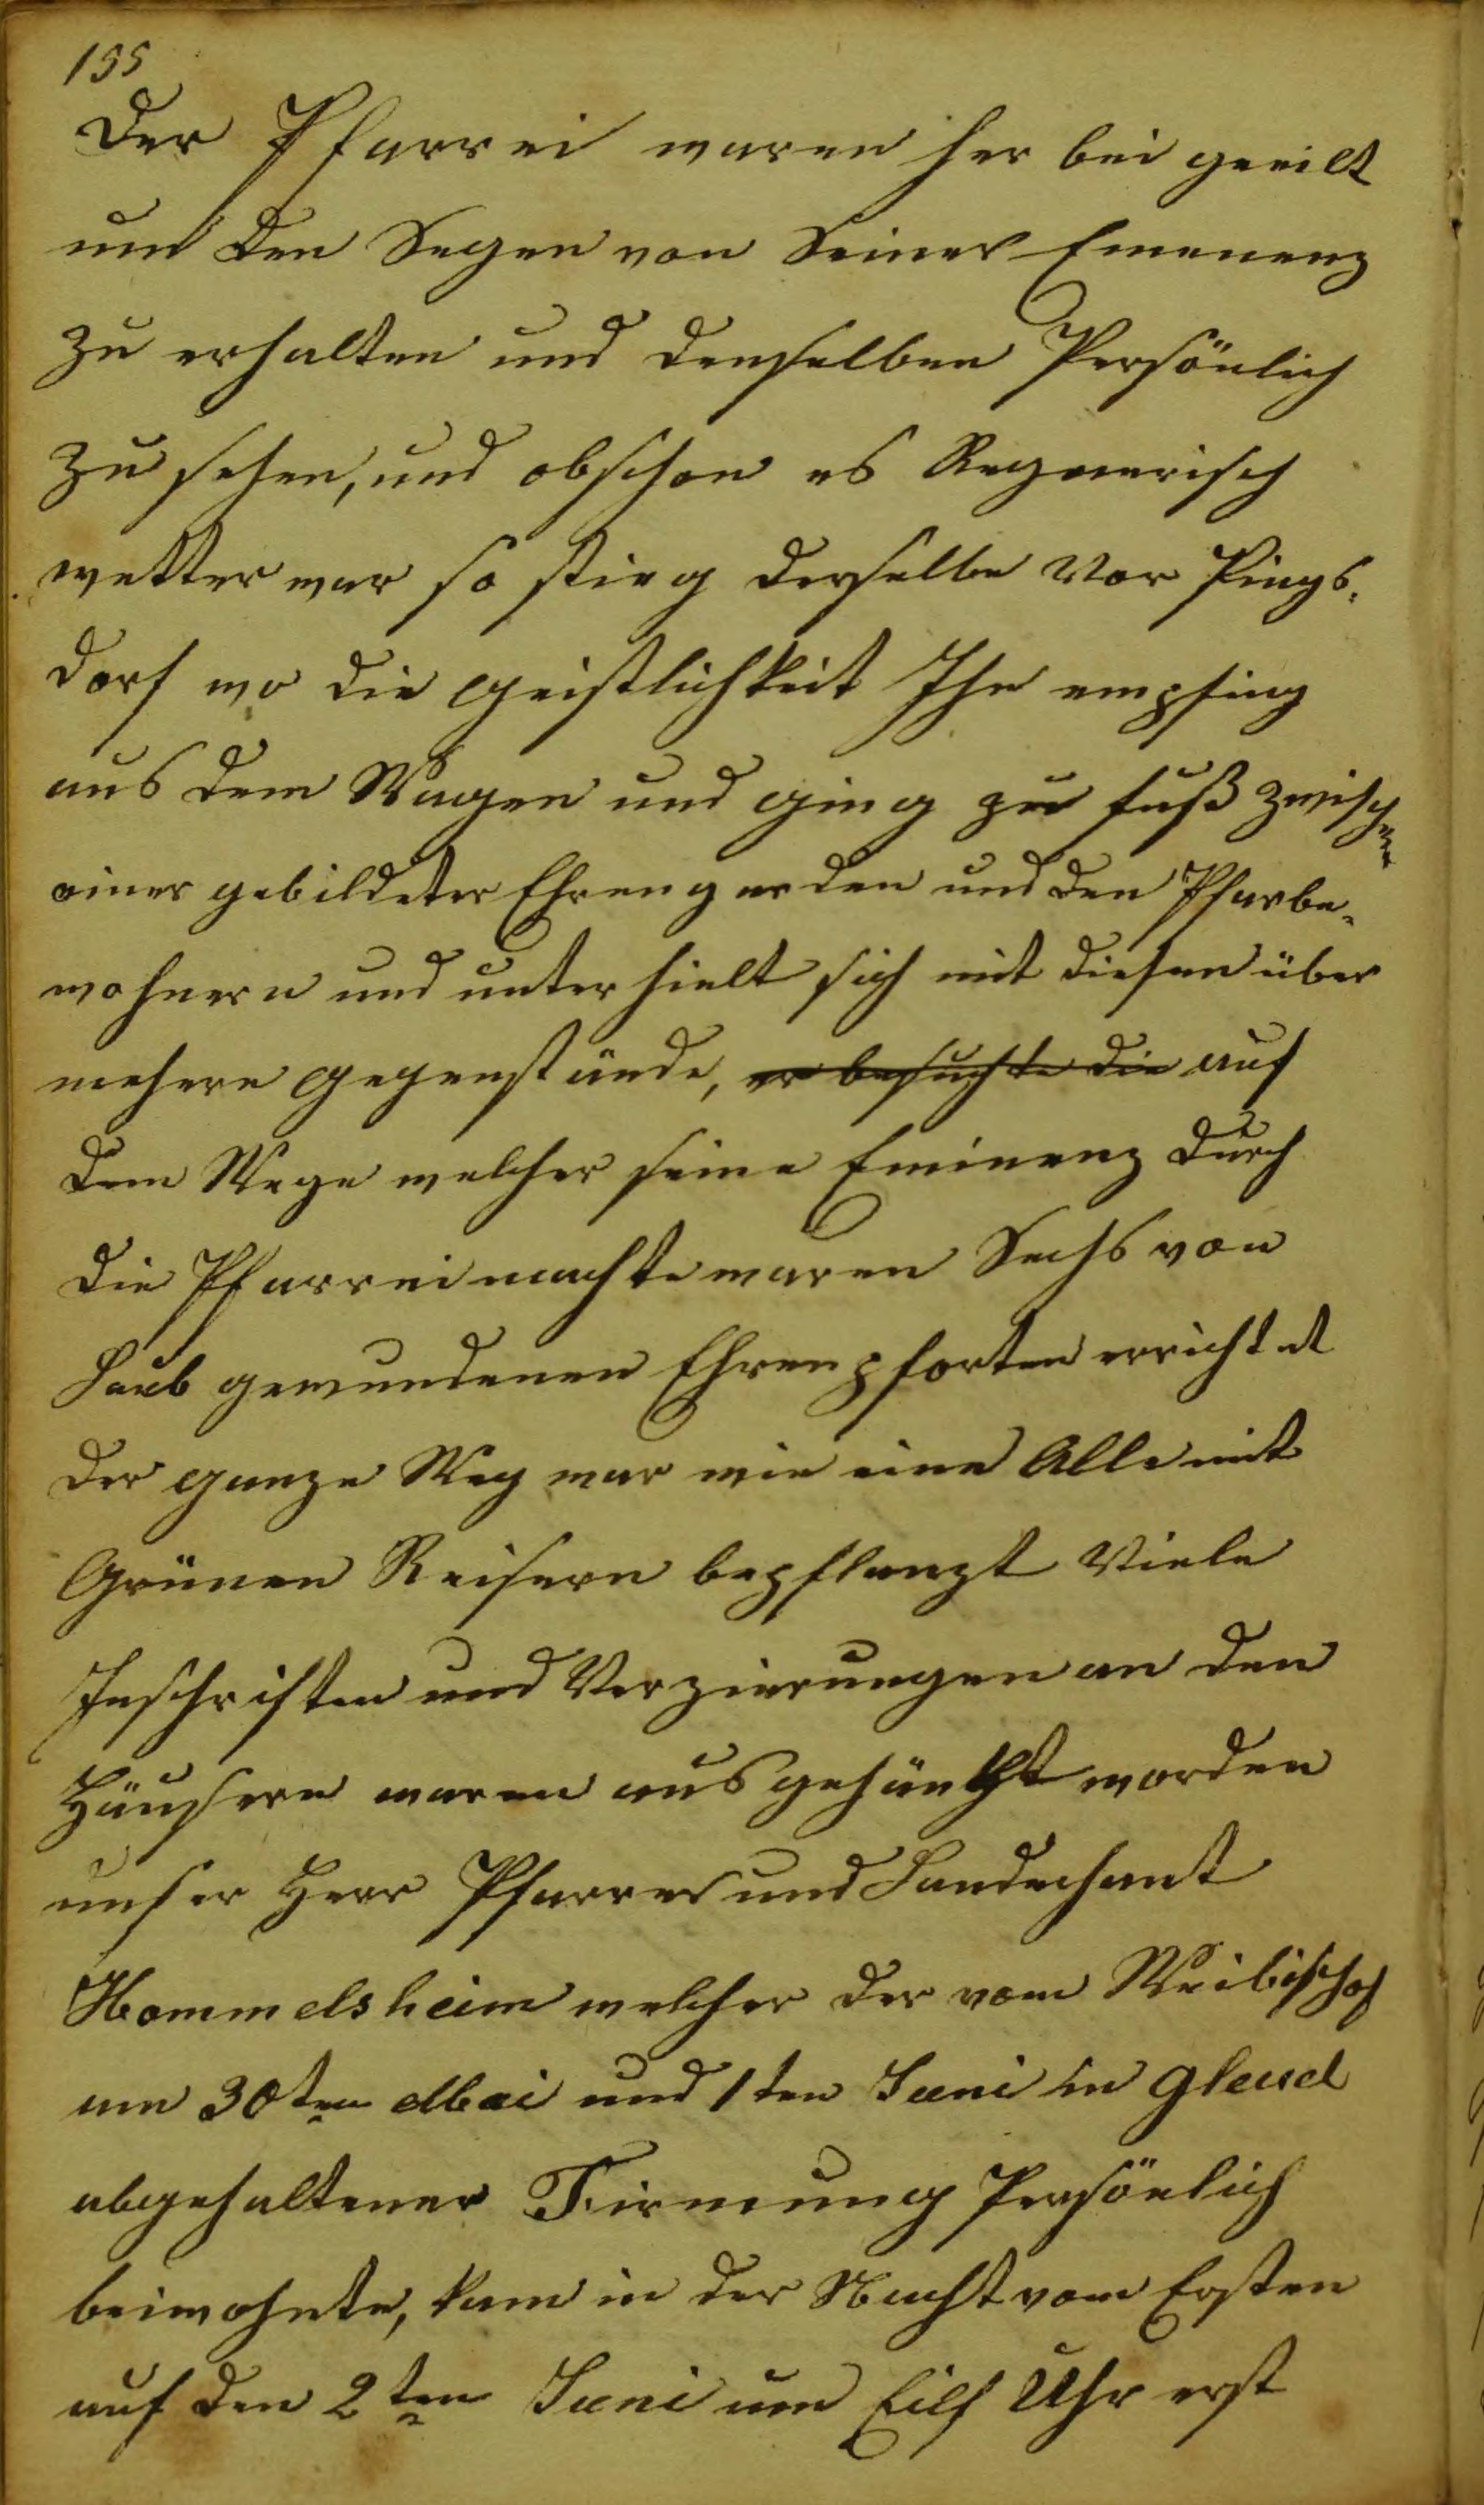 155
Der Pfarrei waren her bei geeilt
um den Segen von Seiner Emenenz
zu erhalten und denselben Persönlich
zu sehen, und obschon es Regnerisch
wetter war so stieg derselbe Vor Pings-
dorf wo die geistlichkeit Ihn empfing
aus dem Wagen und ging zu fuß zwischen
einer gebildeter Ehrengarden und den Pfarbe-
wohnern und unterhielt sich mit diesen über
mehere gegenstände, er besuchte die auf
dem Wege welcher seine Eminenz durch
die Pfarrei machte waren Sechs von
Laub gewundenen Ehrenpforten errichtet
der ganze Weg war wie eine Alle mit
Grünen Reisern bepflanzt Viele
Inschriften und Verzierungen an den
Häusern waren ausgehänkt worden
unser Herr Pfarrer und Landechant
Hommelsheim welcher der vom Weibischof
am 30ten Mai und 1ten Juni in gleuel
abgehaltener Firmung Persönlich
beiwohnte, kam in der Nacht vom Ersten
auf den 2ten Juni um Eilf Uhr erst